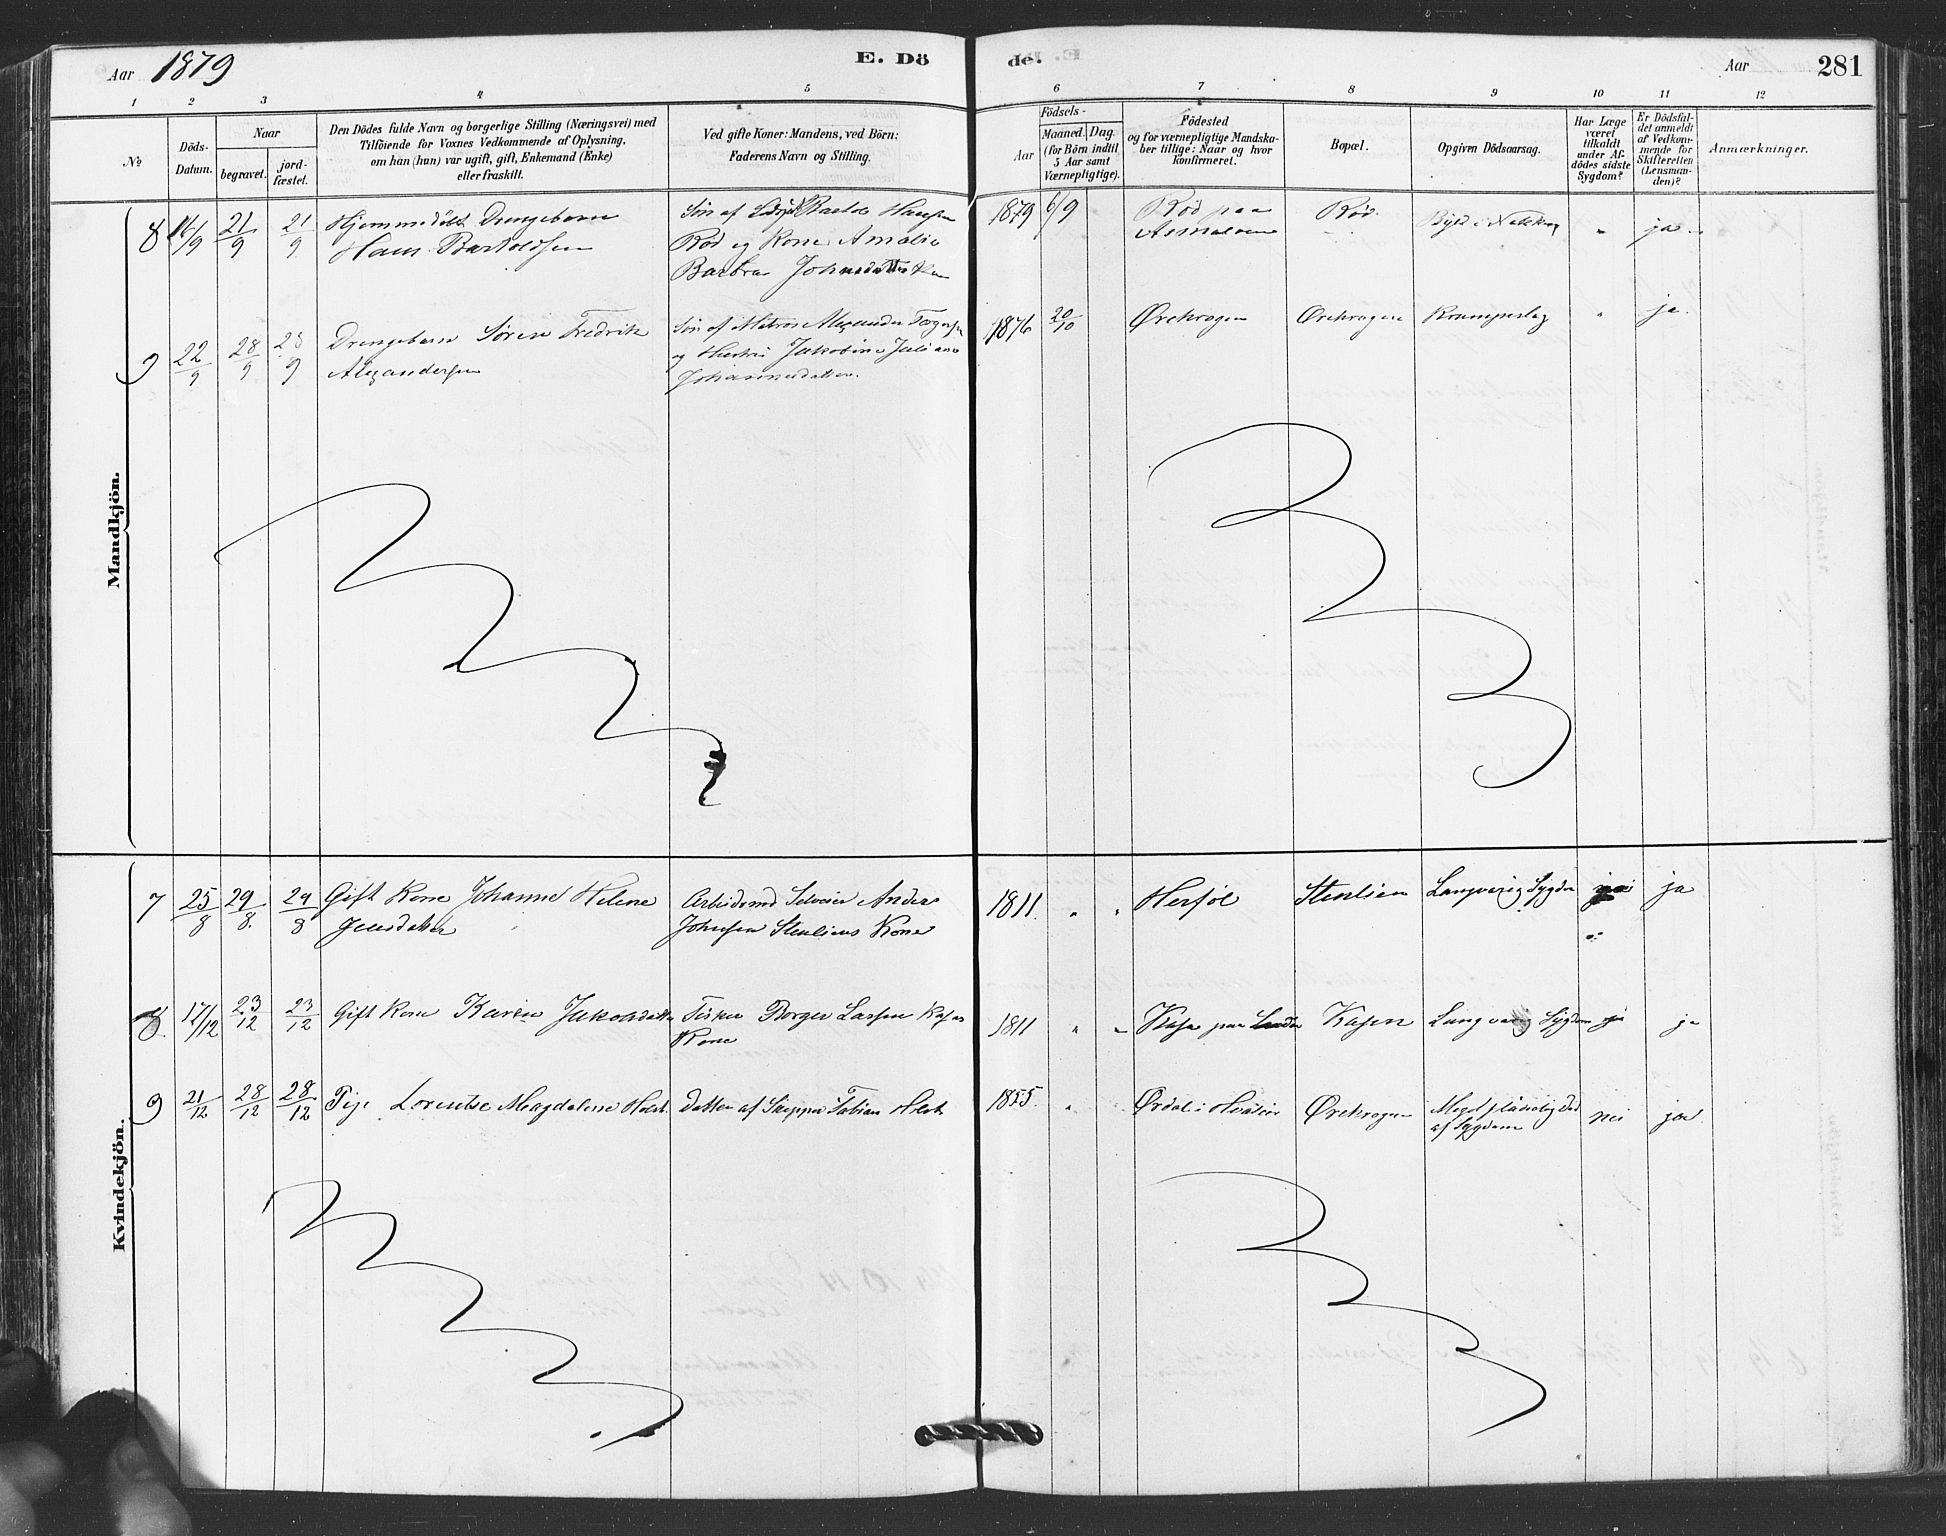 Aar 1879
E. Dö
de.
Aar
281
1 2 3 4 5 6 7 8 9 10 11 12
No
Döds-
Datum.
Naar
begravet.
jord-
fæstet.
Den Dödes fulde Navn og borgerlige Stilling (Næringsvei) med
Tilföiende for Voxnes Vedkommende af Oplysning,
om han (hun) var ugift, gift, Enkemand (Enke)
eller fraskilt.
Ved gifte Koner: Mandens, ved Börn:
Faderens Navn og Stilling.
Födsels-
Aar
Maaned.
Dag.
(for Börn indtil
5 Aar samt
Værnepligtige).
Födested
og for værnepligtige Mandska-
ber tillige: Naar og hvor
konfirmeret.
Bopæl.
Opgiven Dödsaarsag.
Har Læge
været
tilkaldt
under Af-
dödes sidste
Sygdom?
Er Dödsfal-
det anmeldt
af Vedkom-
mende for
Skifteretten
(Lensman-
den)?
Anmærkninger.
Mandkjön.
8 16/9 21/9 21/9
Hjemmedöbt Drengebarn
Hans Bartoldsen
Søn af Hansen
Rød og Kone Amalie
Barbra
1879 6/9
Rød paa
Asmaløen
Rød
Byld i Nakken
" ja
9 22/9 28/9 28/9
Drengebarn Søren Fredrik
Alexandersen
Søn af Matros Alexander
og Hustru Jakobine Juliane
Johannesdatter.
1876 20/10
Ørekrogen
Ørekrogen
Krampeslag
" ja.
Kvindekjön.
7 25/8 29/8. 29/8
Gift Kone Johanne Helene
Jensdatter
Arbeidsmd Selveier Anders
Johnsen Stenliens Kone
1811. " "
Herføl
Stenlien
Langvarig Sygdom
ja
8. 17/12 23/12 23/12
Gift Kone Karen Jakobsdatter
Fisker Borger Larsen
Kone
1811 " "
Kasen
Langvarig Sygdom
ja
9 21/12 28/12 28/12
Pige Lorentse Magdalene Holst
Datter af Skipper Fabian Holst
1855. "
Ørekrogen
Meget pludselig Død
af Sygdom
nei ja